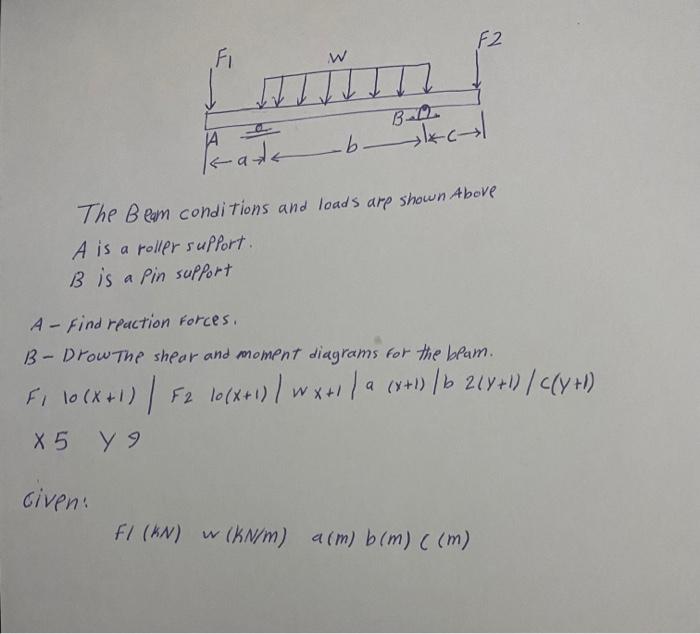 F1 w F2
A B
a b c
The Beam conditions and loads are shown Above
A is a roller support.
B is a Pin support
A - Find reaction Forces.
B - Drow The shear and moment diagrams for the beam.
F1 10(x+1) | F2 10(x+1) | w x+1 | a (x+1) | b 2(y+1) | c(y+1)
X 5 Y 9
Given:
F1 (kN) w (kN/m) a(m) b(m) c (m)